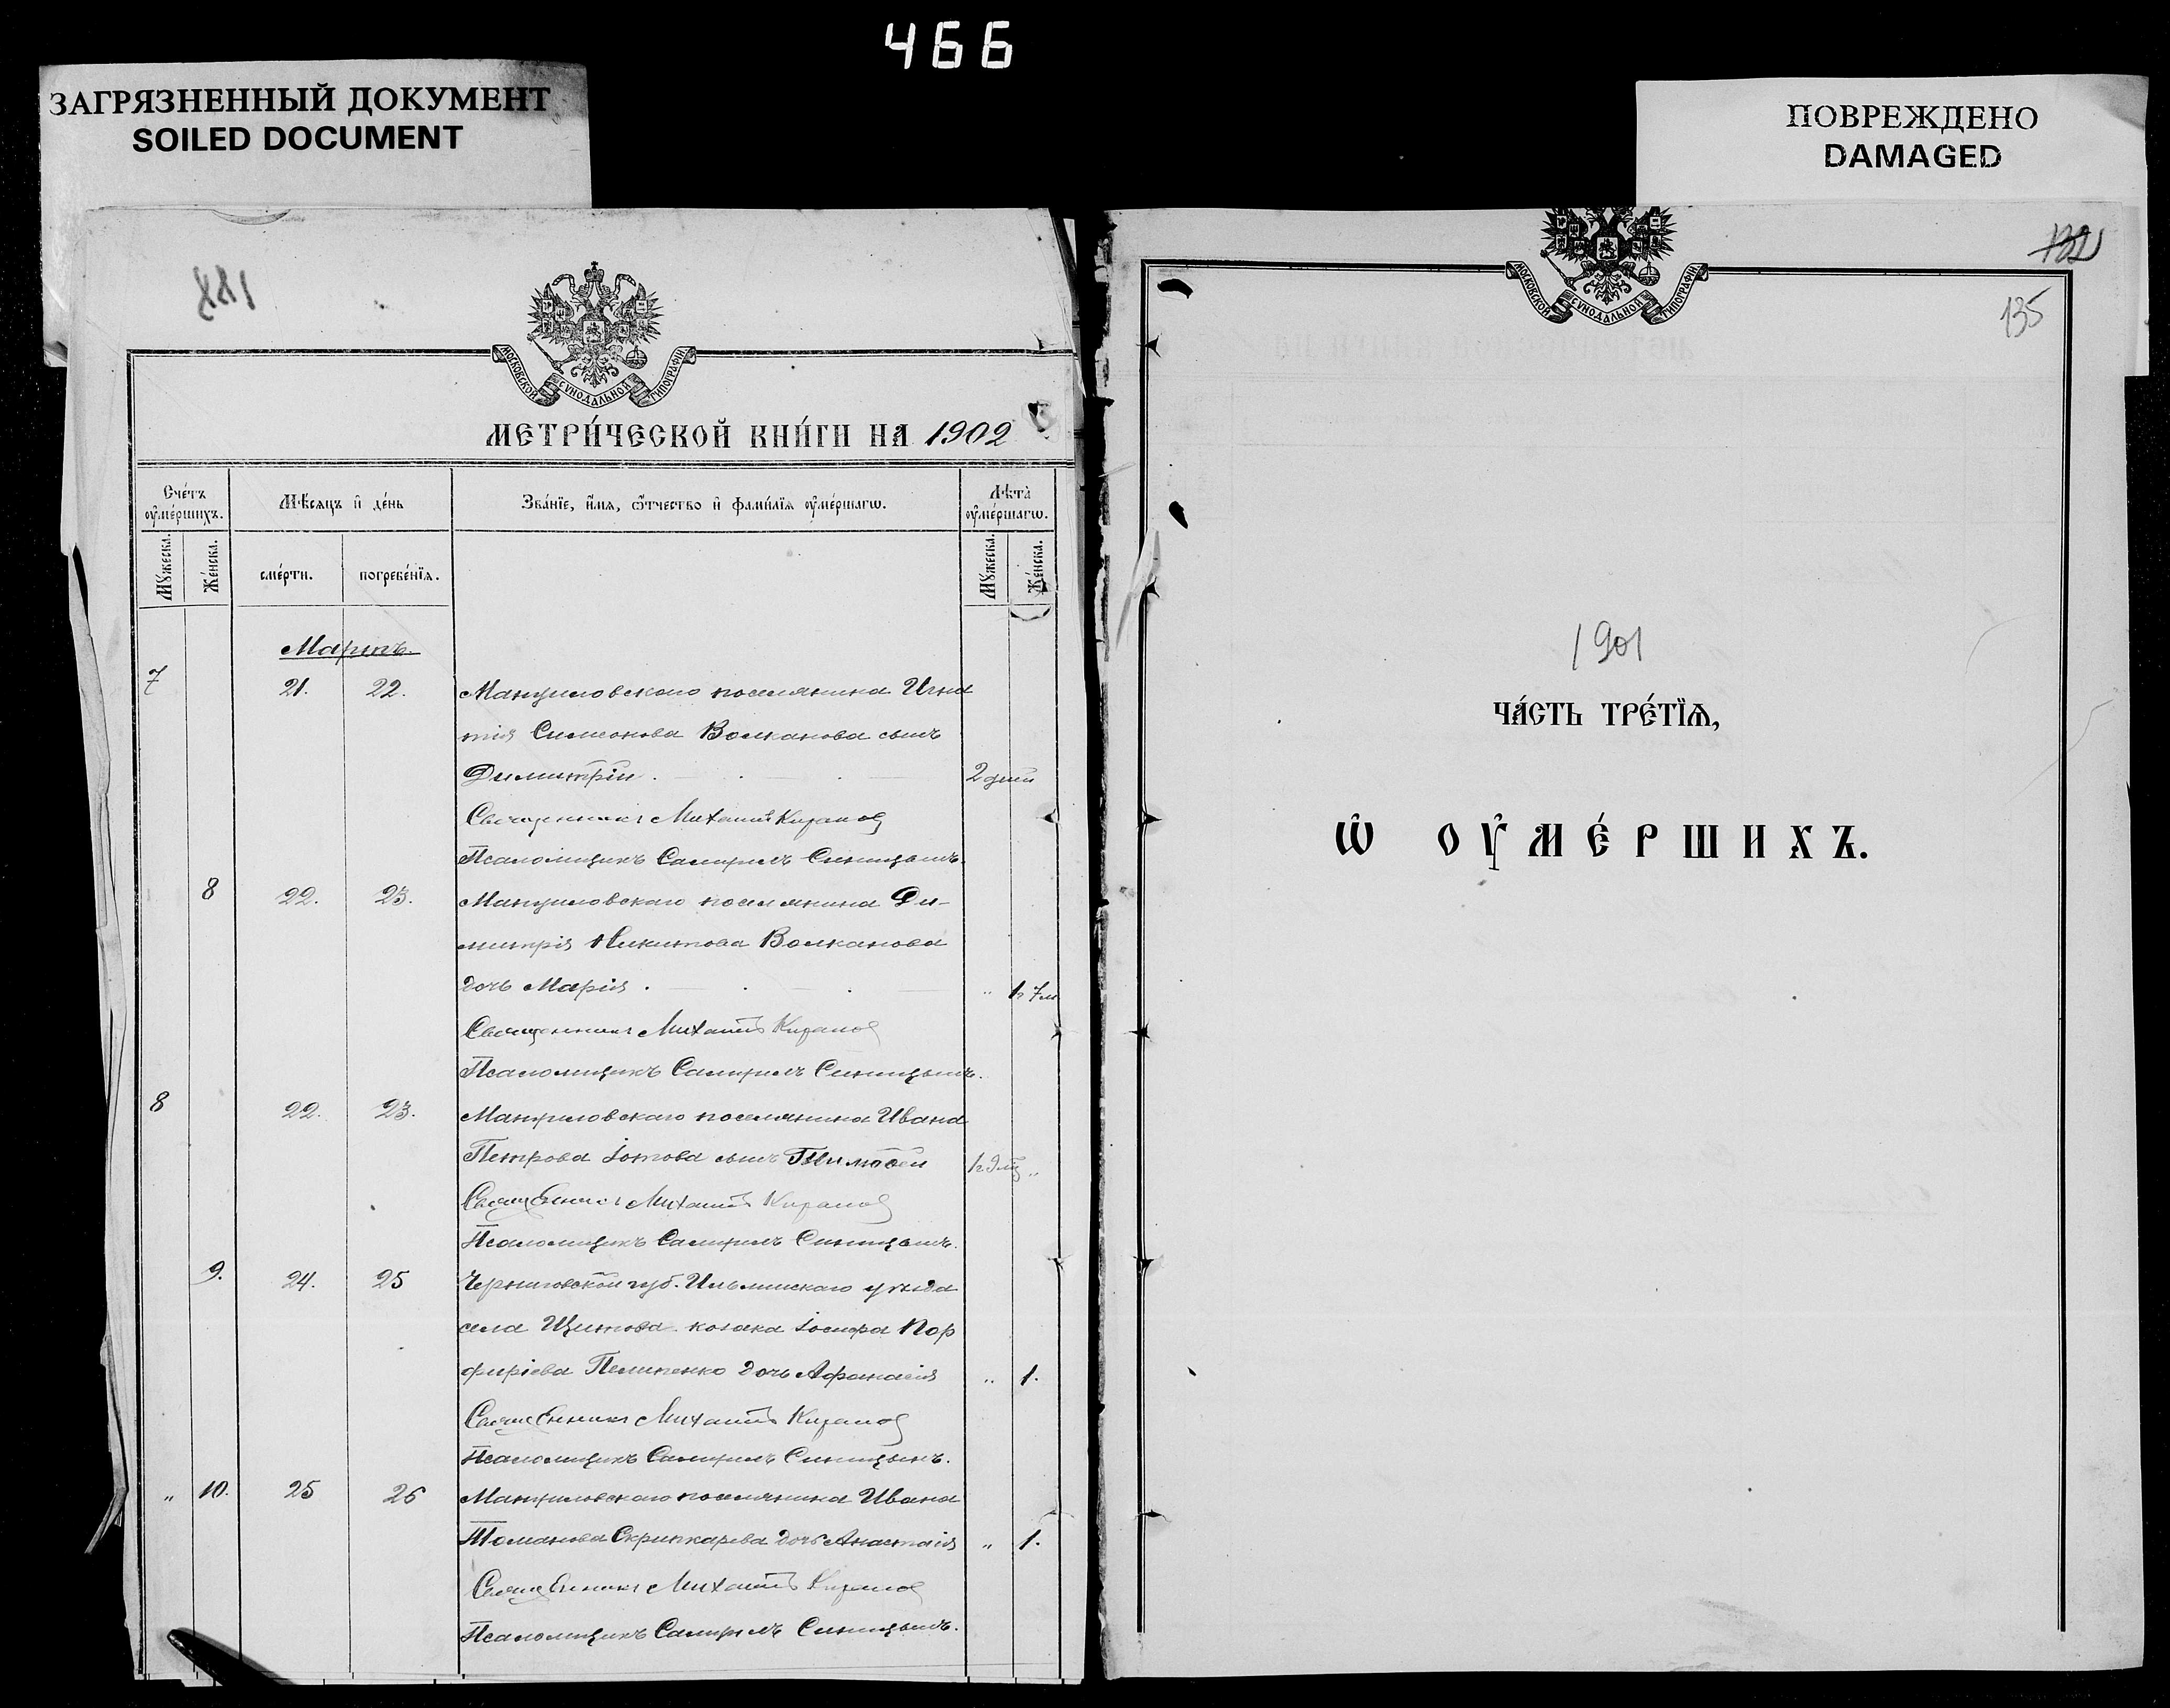 466
ЗАГРЯЗНЕННЫЙ ДОКУМЕНТ
SOILED DOCUMENT
ПОВРЕЖДЕНО
DAMAGED
188
МОСКОВСКОЙ СѴНОДАЛЬНОЙ ТИПОГРАФІИ
МЕТРИ́ЧЕСКОЙ КНИ́ГИ НА 1902
Сче́тъ ᲂу҆ме́ршихъ.
Мѣ́сяцъ и҆ де́нь
Зва́нїе, и҆́мѧ, ѻ҆́тчество и҆ фами́лїѧ ᲂу҆ме́ршагѡ.
Лѣ́та ᲂу҆ме́ршагѡ.
Мꙋ́жеска.
Же́нска.
сме́рти.
погребе́нїѧ.
Мꙋ́жеска.
Же́нска.
Мартъ.
7 21. 22. Манзуловского поселянина Игна
тія Симеонова Волканова сынъ
Димитрій . 2 дней
Священникъ Михаилъ Киранов
Псаломщикъ Самуилъ Синицынъ.
8 22. 23. Манзуловскаго поселянина Ди-
митрія Никитова Волканова
дочь Марія . „ 1 г. 7 м
Священникъ Михаилъ Киранов
Псаломщикъ Самуилъ Синицынъ.
8 22. 23. Манзуловскаго поселянина Ивана
Петрова Іотова сынъ Тимоѳей 1 г. 9 мц „
Священникъ Михаилъ Киранов
Псаломщикъ Самуилъ Синицынъ.
9. 24. 25 Черниговской губ. уѣзда
села козака Іосифа Пор
фиріева Пелипенко дочь Аѳанасія „ 1.
Священникъ Михаилъ Киранов
Псаломщикъ Самуилъ Синицынъ.
„ 10. 25 26 Манзуловскаго поселянина Ивана
Скрипкарева дочь Анастасія „ 1.
Священникъ Михаилъ Киранов
Псаломщикъ Самуилъ Синицынъ.
МОСКОВСКОЙ СѴНОДАЛЬНОЙ ТИПОГРАФІИ
132
135
1901
ЧА́СТЬ ТРЕ́ТЇѦ,
Ѽ ОУ҆МЕ́РШИХЪ.